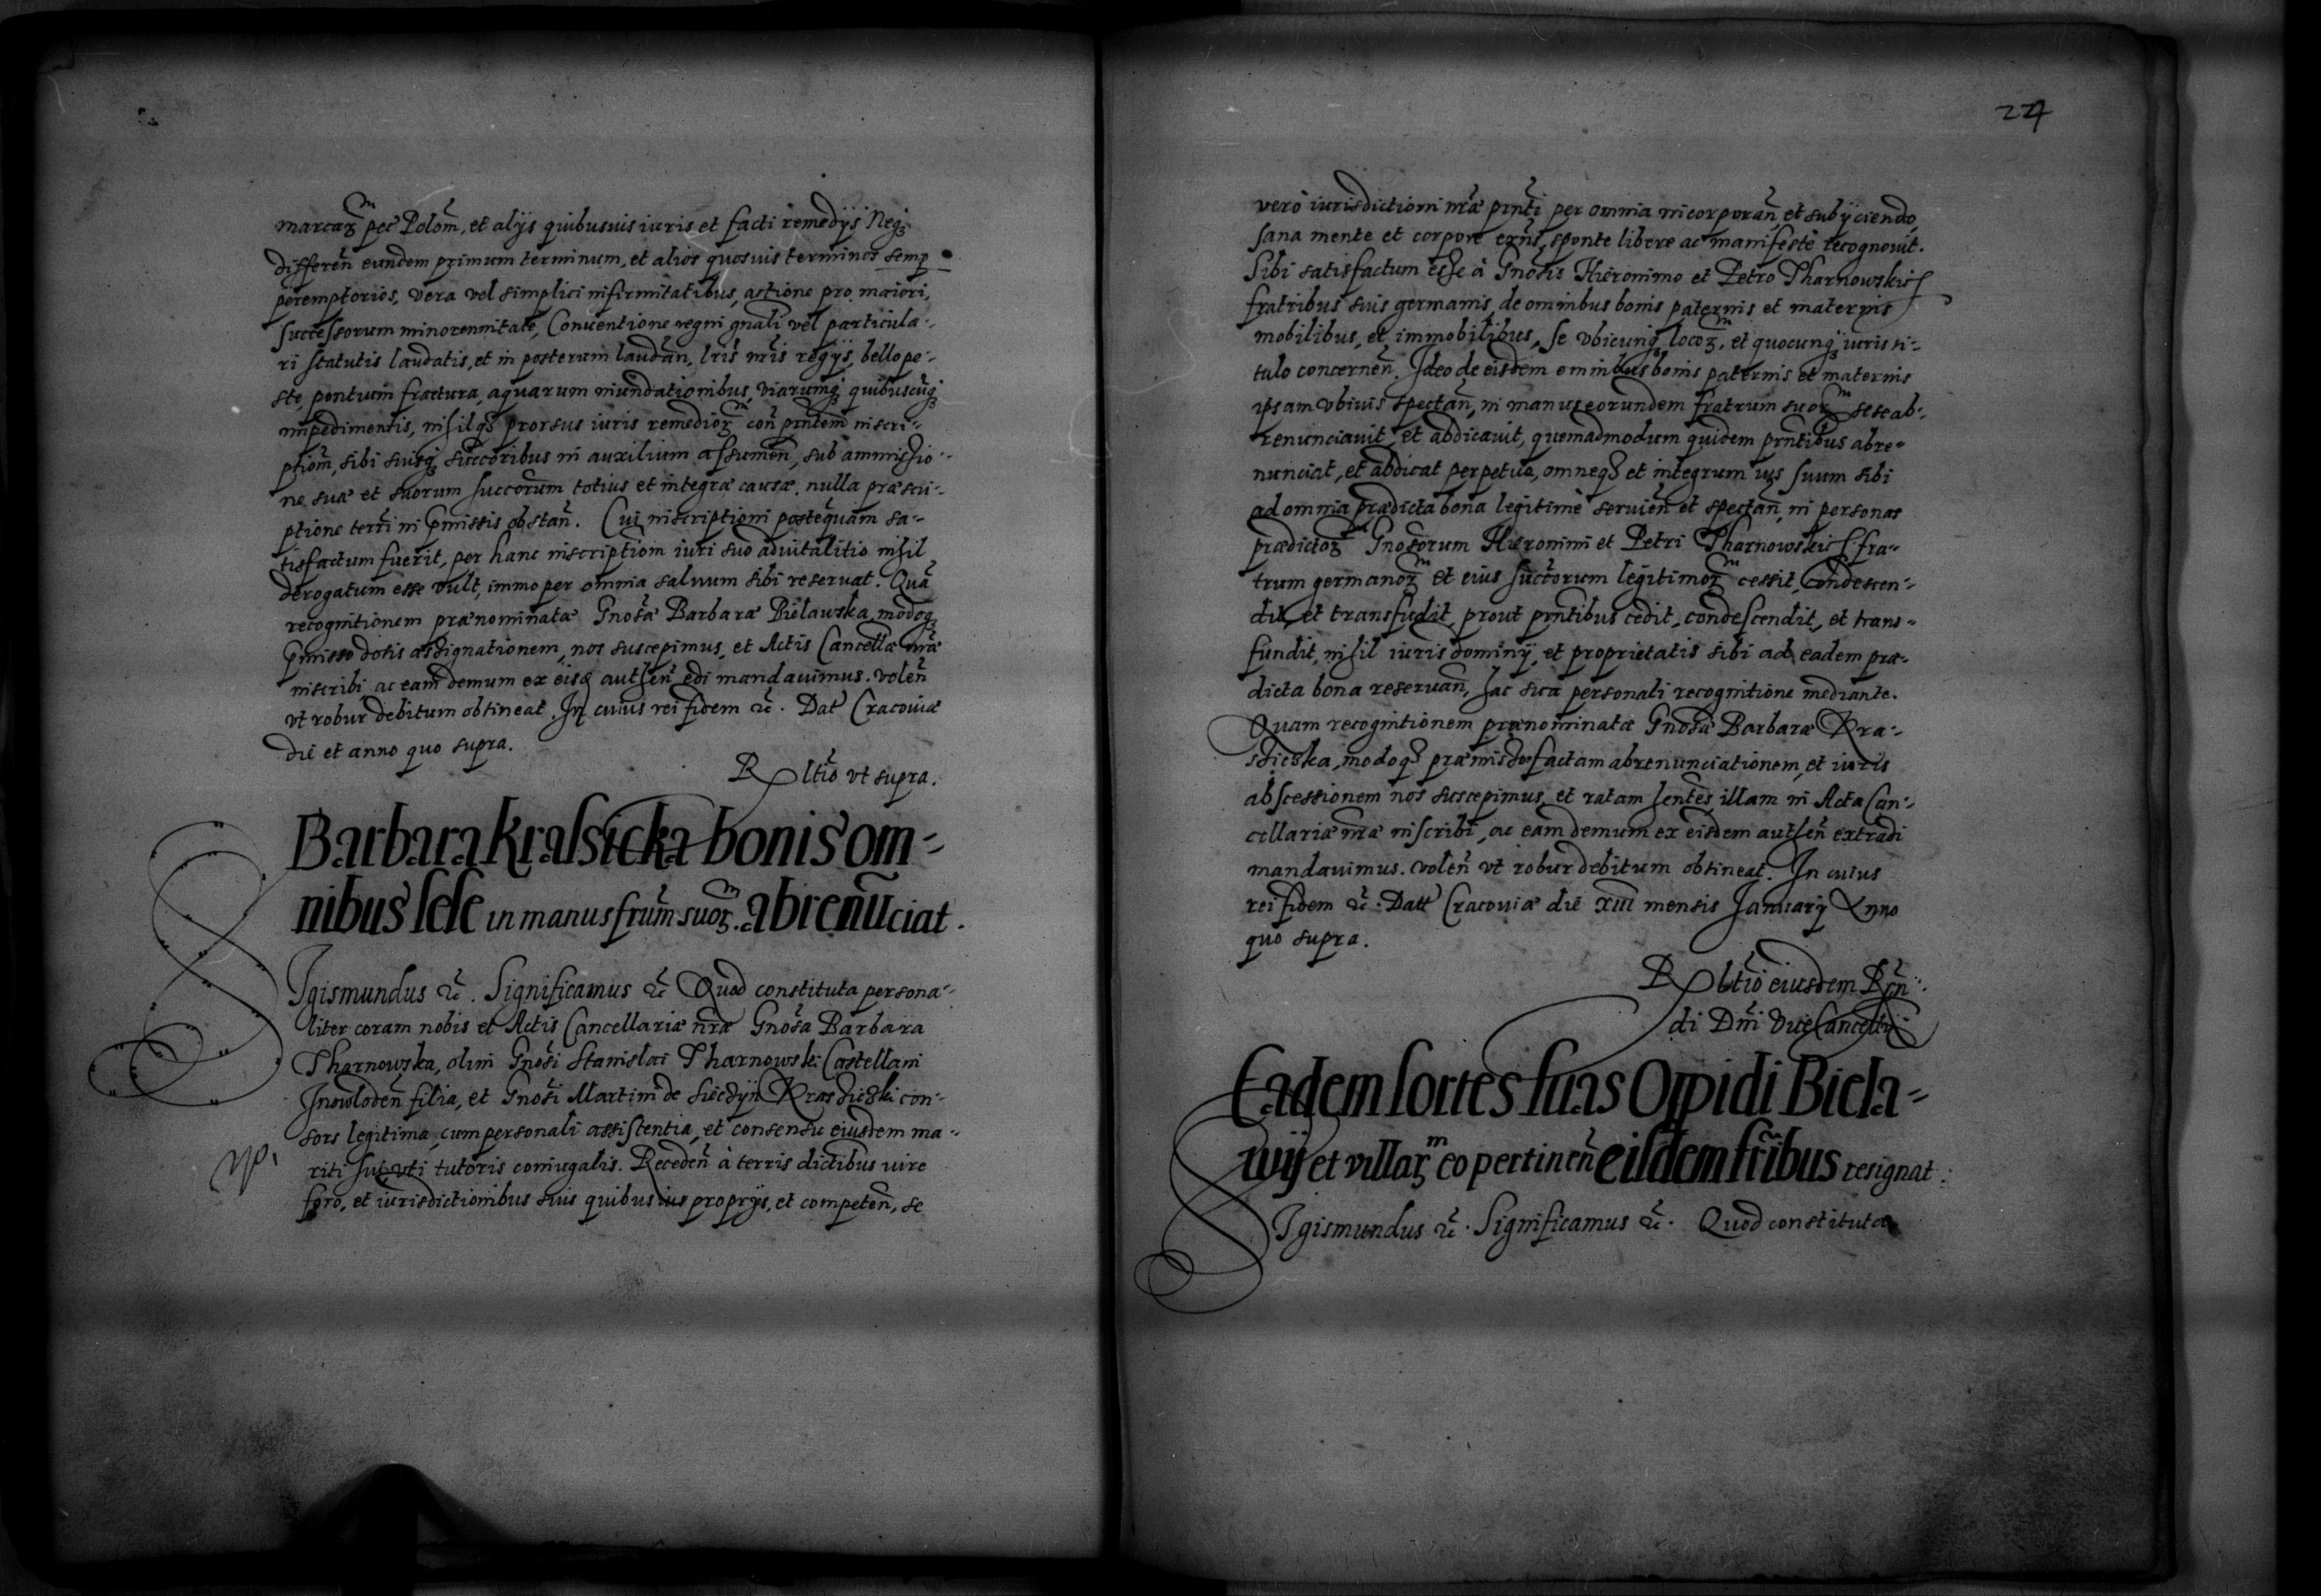 marcaꝝ pec̃ Poloɱ, et alijs quibusuis iuris et facti remedijs Neqꝫ
differeñ eundem primum terminum, et alios quosuis terminos semp
peremptorios, vera vel simplici infirmitatibus, actione pro maiori,
successorum minorennitate, Conuentione regni gnãli vel particula-
ri statutis laudatis, et in posterum laudañ, lr̃is nr̃is regijs, bello pe-
ste, pontium fractura, aquarum inundationibus, viarumqꝫ quibuscũqꝫ
impedimentis, nihilqꝫ prorsus iuris remedioꝝ coñ prñtem inscri-
ptiom̃, sibi suisqꝫ succoribus in auxilium assumeñ, sub ammissio-
ne suæ et suorum succorum totius et integræ causæ, nulla præscri-
ptione terr̃i in p̃missis obstañ. Cui inscriptioni postequam sa-
tisfactum fuerit, per hanc inscriptiom̃ iuri suo aduitalitio nihil
derogatum esse vult, immo per omnia saluum sibi reseruat. Quã
recognitionem prænominatæ Gnosæ Barbaræ Bielawska, modoqꝫ
p̃misso dotis assignationem, nos suscepimus, et Actis Cancellæ nr̃æ
inscribi ac eam demum ex eisd autheñ edi mandauimus. voleñ
vt robur debitum obtineat. In cuius rei fidem ꝛc̃. Dat̃ Cracouiæ
die et anno quo supra.
Rltio vt supra.
Barbara Krassicka bonis om-
nibus sese in manus frum̃ suoꝝ abrenũciat.
SIgismundus ꝛc̃. Significamus ꝛc̃ Quod constituta persona-
liter coram nobis et Actis Cancellariæ nr̃æ Gnosa Barbara
Tharnowska, olim Gnosi Stanislai Tharnowski Castellani
Inowlodeñ filia, et Gnosi Martini de Sieczyn Krashiczki con-
sors legitima, cum personali assistentia, et consensu eiusdem ma-
riti sui, vti tutoris coniugalis. Recedeñ à terris dictibus iure
foro, et iurisdictionibus suis quibusius proprijs, et competeñ, se
224
verò iurisdictioni nr̃æ prñti per omnia incorporañ, et subijciendo,
sana mente et corpore exñs, sponte libere ac manifestè recognouit.
Sibi satisfactum esse à Gnosis Hieronimo et Petro Tharnowskich
fratribus suis germanis, de omnibus bonis paternis et maternis
mobilibus, et immobilibus, se vbicunqꝫ locoꝝ, et quocunqꝫ iuris ti-
tulo concerneñ. Ideo de eisdem omnibus bonis paternis et maternis
ipsam vbiuis spectañ, in manus eorundem fratrum suoꝝ sese ab-
renunciauit, et abdicauit, quemadmodum quidem prñtibus abre-
nunciat, et abdicat perpetuo, omneqꝫ et integrum ius suum sibi
ad omnia prædicta bona legitimè seruieñ et spectañ, in personas
prædictoꝝ Gnosorum Hieronimi et Petri Tharnowskich fra-
trum germanoꝝ et eius succorum legitimoꝝ cessit, condescen-
dit, et transfudit, prout prñtibus cedit, condescendit, et trans-
fundit, nihil iuris dominij, et proprietatis sibi ad eadem præ-
dicta bona reseruañ, hac sua personali recognitione mediante.
Quam recognitionem prænominatæ Gnosæ Barbaræ Kra-
shiczka, modoqꝫ præmisso factam abrenunciationem, et iuris
abscessionem nos suscepimus, et ratam hentes illam in Acta Can-
cellariæ nr̃æ inscribi, ac eam demum ex eisdem autheñ extradi
mandauimus. voleñ vt robur debitum obtineat. In cuius
rei fidem ꝛc̃. Datt̃ Cracouiæ die xiii mensis Januarij Anno
quo supra.
Rltio eiusdem Rñ-
di Dñi ViceCancellrij
Eadem sortes suas Oppidi Biela-
wij et villaꝝ eo pertineñ eisdem frĩbus resignat.
SIgismundus ꝛc̃. Significamus ꝛc̃. Quod constituta